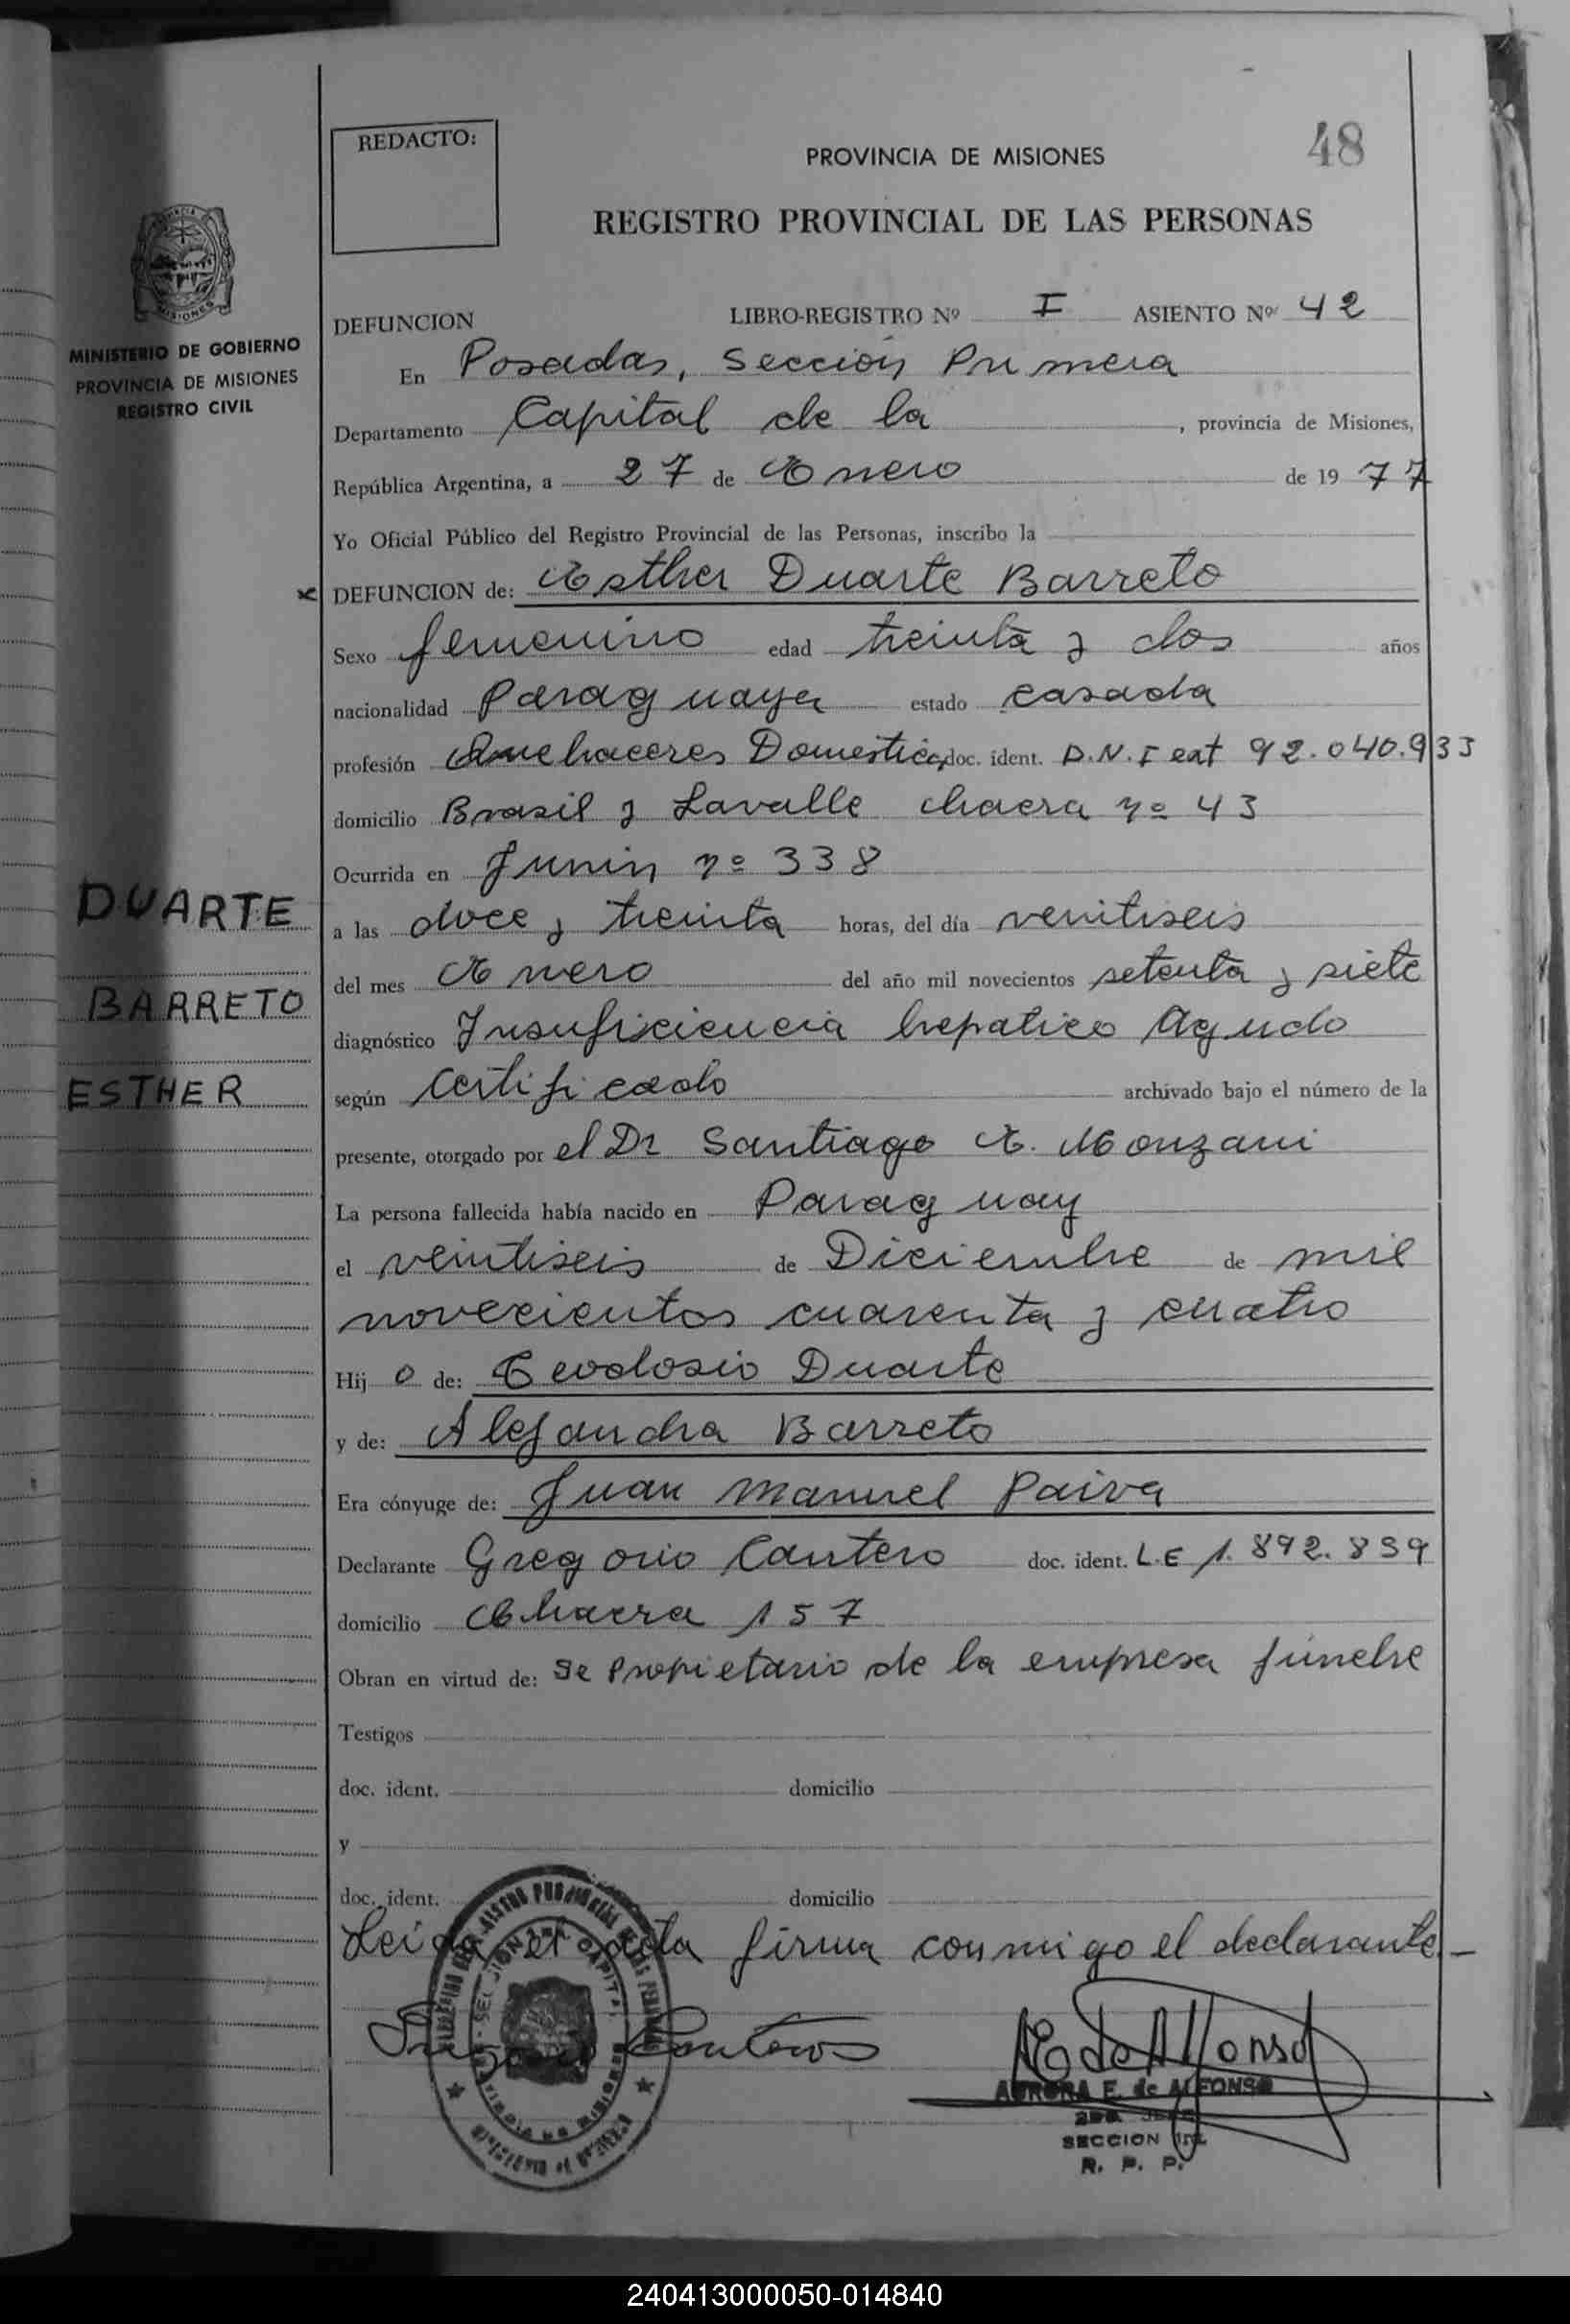 REDACTO:
PROVINCIA DE MISIONES
48
REGISTRO PROVINCIAL DE LAS PERSONAS
MINISTERIO DE GOBIERNO
PROVINCIA DE MISIONES
REGISTRO CIVIL
DEFUNCION LIBRO-REGISTRO Nº I ASIENTO Nº 42
En Posadas, Sección Primera
Departamento Capital de la , provincia de Misiones,
República Argentina, a 27 de Enero de 19 77
Yo Oficial Público del Registro Provincial de las Personas, inscribo la
x DEFUNCION de: Esther Duarte Barreto
Sexo femenino edad treinta y dos años
nacionalidad Paraguaya estado casada
profesión Quehaceres Domestico doc. ident. D.N.I ext 92.040.933
domicilio Brasil y Lavalle chacra nº 43
Ocurrida en Junin nº 338
a las doce y treinta horas, del día venitiseis
del mes Enero del año mil novecientos setenta y siete
diagnóstico Insuficiencia hepatico Agudo
según Certificado archivado bajo el número de la
presente, otorgado por el Dr Santiago E. Monzani
La persona fallecida había nacido en Paraguay
el veintiseis de Diciembre de mil
novecientos cuarenta y cuatro
Hij o de: Teodosio Duarte
y de: Alejandra Barreto
Era cónyuge de: Juan Manuel Paiva
Declarante Gregorio Cantero doc. ident. L.E 1.892.839
domicilio Chacra 157
Obran en virtud de: se Propietario de la empresa fúnebre
Testigos
doc. ident. domicilio
y
doc. ident. domicilio
Leida el acta firma conmigo el declarante.-
DUARTE
BARRETO
ESTHER
AURORA E. de ALFONSO
SECCION 1ra.
R. P. P.
240413000050-014840